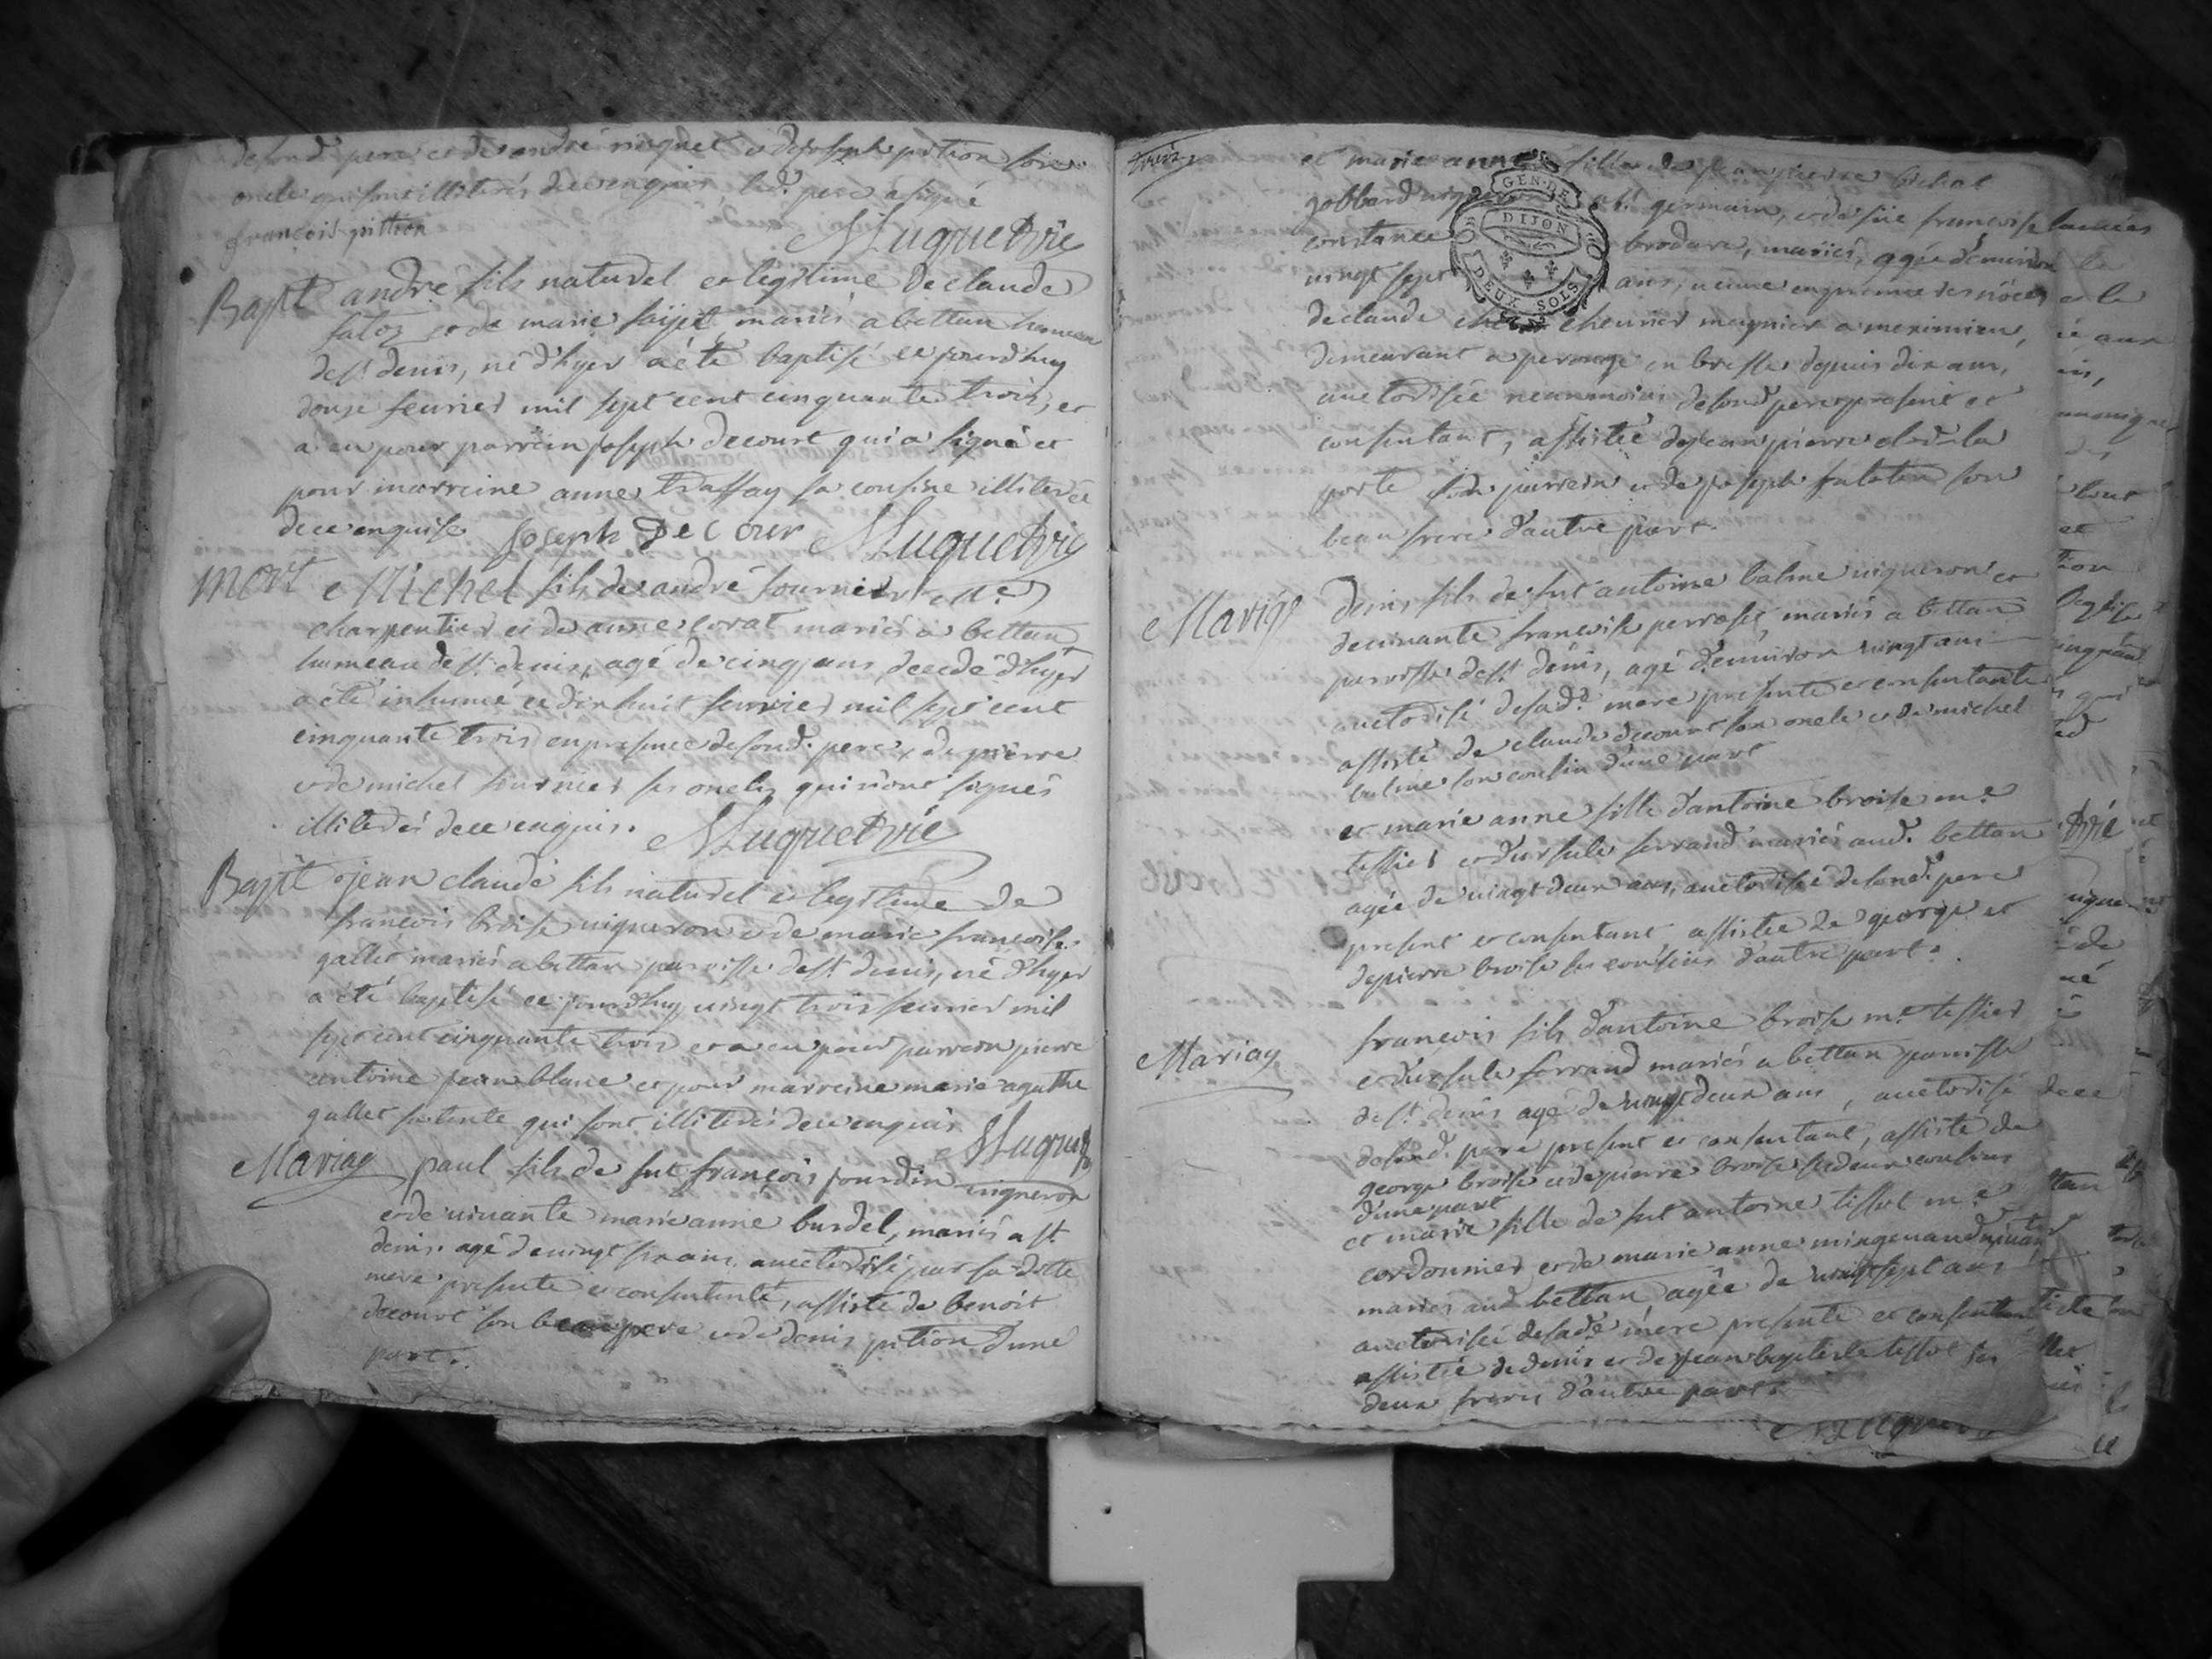 de son d. pere et de andré niquet et de joseph pition son
oncle qui sont illiterés de ce enquis, led. pere a signé
françois pittion
MuguetVic
Bapt andré fils naturel et legitime de claude
faloz et de marie saijet mariés a bettan hameau
de st. denis, né d'hyer a été baptisé ce jourd'huy
douze feurier mil sept cent cinquante trois, et
a eu pour parrein joseph decourt qui a signé et
pour marreine anne trassay sa cousine illiterée
de ce enquise Joseph De Cour MuguetVic
Mort Michel fils de andré fournier me
charpentier et de anne corat mariés a bettan
hameau de st. denis, agé de cinq ans, decedé d'hyer
a été inhumé ce dix huit feurier mil sept cent
cinquante trois en presence de son d. pere, de pierre
et de michel fournier ses oncles qui n'ont signés
illiterés de ce enquis. MuguetVic
Bapt jean claude fils naturel et legitime de
françois broise uigneron et de marie françoise
gallet mariés a bettan paroisse de st. denis, né d'hyer
a été baptisé ce jourd'huy uingt trois feurier mil
sept cent cinquante trois et a eu pour parrein pierre
antoine jean blanc et pour marreine marie agathe
gallet sa tente qui sont illiterés de ce enquis.
Muguet
Mariag paul fils de fut françois jourdin uigneron
et de uiuante marie anne burdel, mariés a st.
denis. agé de uingt six ans, auctorisé par sa ditte
mere presente et consentente, assisté de benoit
decourt son beau pere et de denis pition d'une
part.
et marie anne fille de jean pierre bichat
gobbard st. germain, et de füe françoise
constance brodare, mariés, agée d'enuiron
uingt sept ans, ueuue en premieres nôces
de claude cheurier magnier a meximieu,
demeurant a perouge en bresse depuis dix ans,
auctorisée neanmoins de son d. pere present et
consentant, assistée de jean pierre de la
porte son parrein et de joseph falatin son
beau frere d'autre part.
Mariag denis fils de fut antoine balme uigneron et
de uiuante françoise perroset, mariés a bettan
paroisse de st. denis, agé d'enuiron uingt ans
auctorisé de sad. mere presente et consentante
assisté de claude decourt son oncle et de michel
balme son cousin d'une part
et marie anne fille d'antoine broise me.
tessier et d'ursule ferrand mariés aud. bettan
agée de uingt deux ans, auctorisée de son d. pere
present et consentant assistée de george et
de pierre broise ses cousins d'autre part.
Mariag françois fils d'antoine broise me. tessier
et d'ursule ferrand mariés a bettan paroisse
de st. denis agé de uingt deux ans, auctorisé
de son d. pere present et consentant, assisté de
george broise et de pierre broise ses deux cousins
d'une part
et marie fille de fut antoine tissot me
cordonnier et de marie anne mingenaud uiuante
mariés aud. bettan agée de uingt sept ans
auctorisée de sade. mere presente et consentante
assistée de denis et de jean baptiste tissot ses
deux freres d'autre part.
Muguet
GEN. DE
DIJON
DEUX SOLS